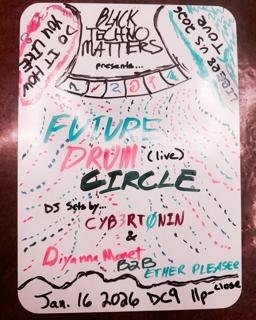 BLACK
TECHNO
MATTERS
presents...
DO IT HOW
YOU LIKE
U.S. 2026
TOUR
FUTURE
DRUM (live)
CIRCLE
DJ Sets by...
CYB3RTØNIN
&
Diyanna Monet
B2B
ETHER PLEASER
Jan. 16 2026 DC9 11p-close